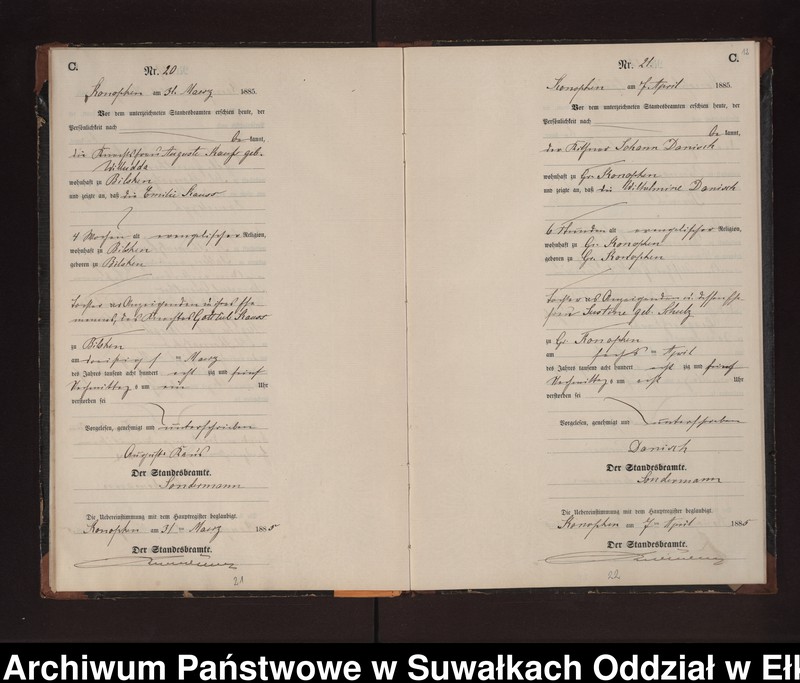 C.
Nr. 20
Konopken am 31. Maerz 1885.
Vor dem unterzeichneten Standesbeamten erschien heute, der
Persönlichkeit nach
be kannt,
die Knechtsfrau Auguste geb.
wohnhaft zu Bilsken
und zeigte an, daß die Emilie
4 Wochen alt evangelischer Religion,
wohnhaft zu Bilsken
geboren zu Bilsken
Tochter des Anzeigenden
des Knechtes Gottlieb
zu Bilsken
am ten Maerz
des Jahres tausend acht hundert acht zig und fuenf
Vormittags um ein Uhr
verstorben sei
Vorgelesen, genehmigt und unterschrieben
Auguste
Der Standesbeamte.
Sondermann
Die Uebereinstimmung mit dem Hauptregister beglaubigt.
Konopken am 31 ten Maerz 1885
Der Standesbeamte.
21
C.
12
Nr. 21.
Konopken am 7. April 1885.
Vor dem unterzeichneten Standesbeamten erschien heute, der
Persönlichkeit nach
be kannt,
der Johann Danisch
wohnhaft zu Gr. Konopken
und zeigte an, daß die Wilhelmine Danisch
6 Stunden alt evangelischer Religion,
wohnhaft zu Gr. Konopken
geboren zu Gr. Konopken
Tochter des Anzeigenden u. dessen Ehe
frau Justine geb. Schulz
zu Gr. Konopken
am ten April
des Jahres tausend acht hundert acht zig und fuenf
Vormittags um acht Uhr
verstorben sei
Vorgelesen, genehmigt und unterschrieben
Danisch
Der Standesbeamte.
Sondermann
Die Uebereinstimmung mit dem Hauptregister beglaubigt.
Konopken am 7 ten April 1885
Der Standesbeamte.
22
Archiwum Państwowe w Suwałkach Oddział w Ełk